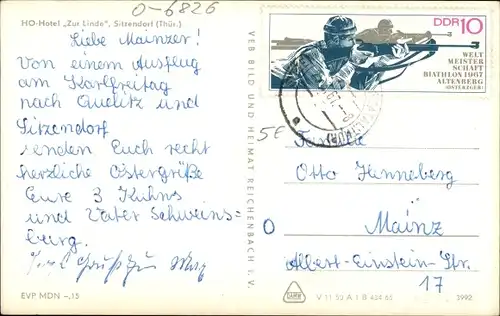 O-6826
HO-Hotel „Zur Linde", Sitzendorf (Thür.)
Liebe Mainzer!
Von einem Ausflug
am Karfreitag
nach und
Sitzendorf
senden Euch recht
herzliche Ostergrüße
Eure 3 Kuhns
und Vater Schweins=
burg.
EVP MDN –,15
VEB BILD UND HEIMAT REICHENBACH I. V.
DDR 10
WELT
MEISTER
SCHAFT
BIATHLON 1967
ALTENBERG
(OSTERZGEB)
5€
Familie
Otto Henneberg
O Mainz
Albert-Einstein-Str.
17
V 11 50 A 1 B 424 66
1992